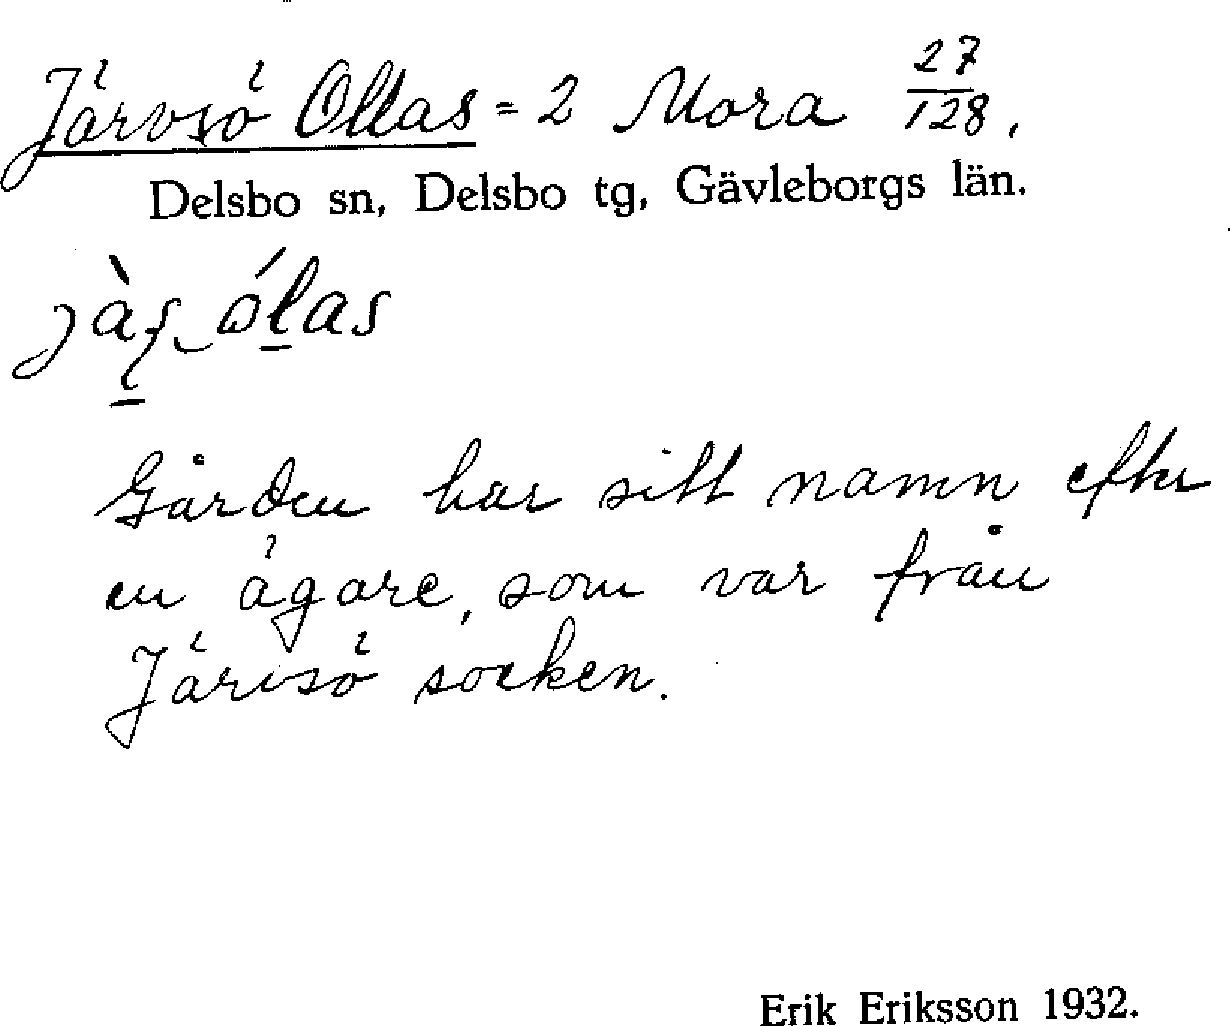 Järvsö Ollas = 2 Mora 27/128.
Delsbo sn, Delsbo tg, Gävleborgs län.
Gården har sitt namn efter
en ägare, som var från
Järvsö socken.
Erik Eriksson 1932.